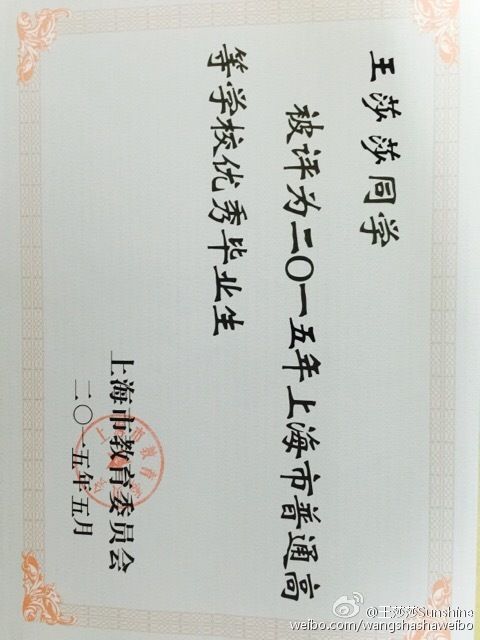 王莎莎同学
被评为二〇一五年上海市普通高
等学校优秀毕业生
上海市教育委员会
二〇一五年五月
@王莎莎Sunshine
weibo.com/wangshashaweibo